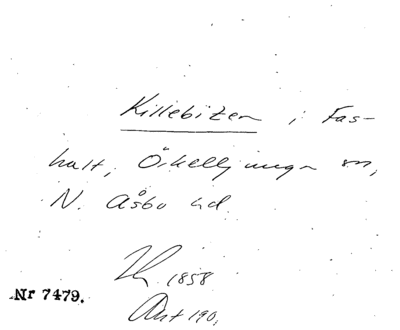 Killebiten i Fas-
halt, Örkelljunga sn,
N. Åsbo hd.
1858
Nr 7479.
Avt 190,